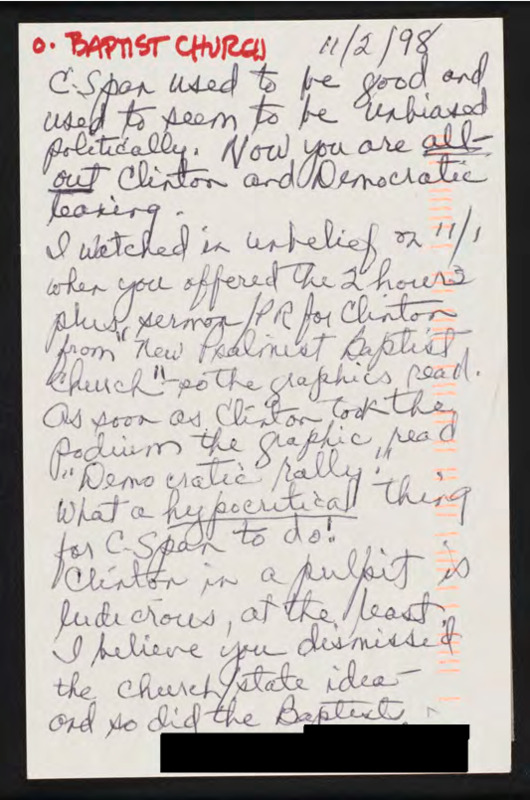 O. BAPTIST CHURCH 11/2/98
C-Span used to be good and
used to seem to be unbiased
politically. Now you are all-
out Clinton and Democratic
leaning.
I watched in unbelief on 11/1
when you offered the 2 hours
plus, sermon/PR for Clinton
from "New Psalmist Baptist
Church" - so the graphics read.
As soon as Clinton took the
podium the graphic read
"Democratic rally."
What a hypocritical thing
for C-Span to do!
Clinton in a pulpit is
ludicrous, at the least.
I believe you dismissed
the church/state idea -
and so did the Baptists.